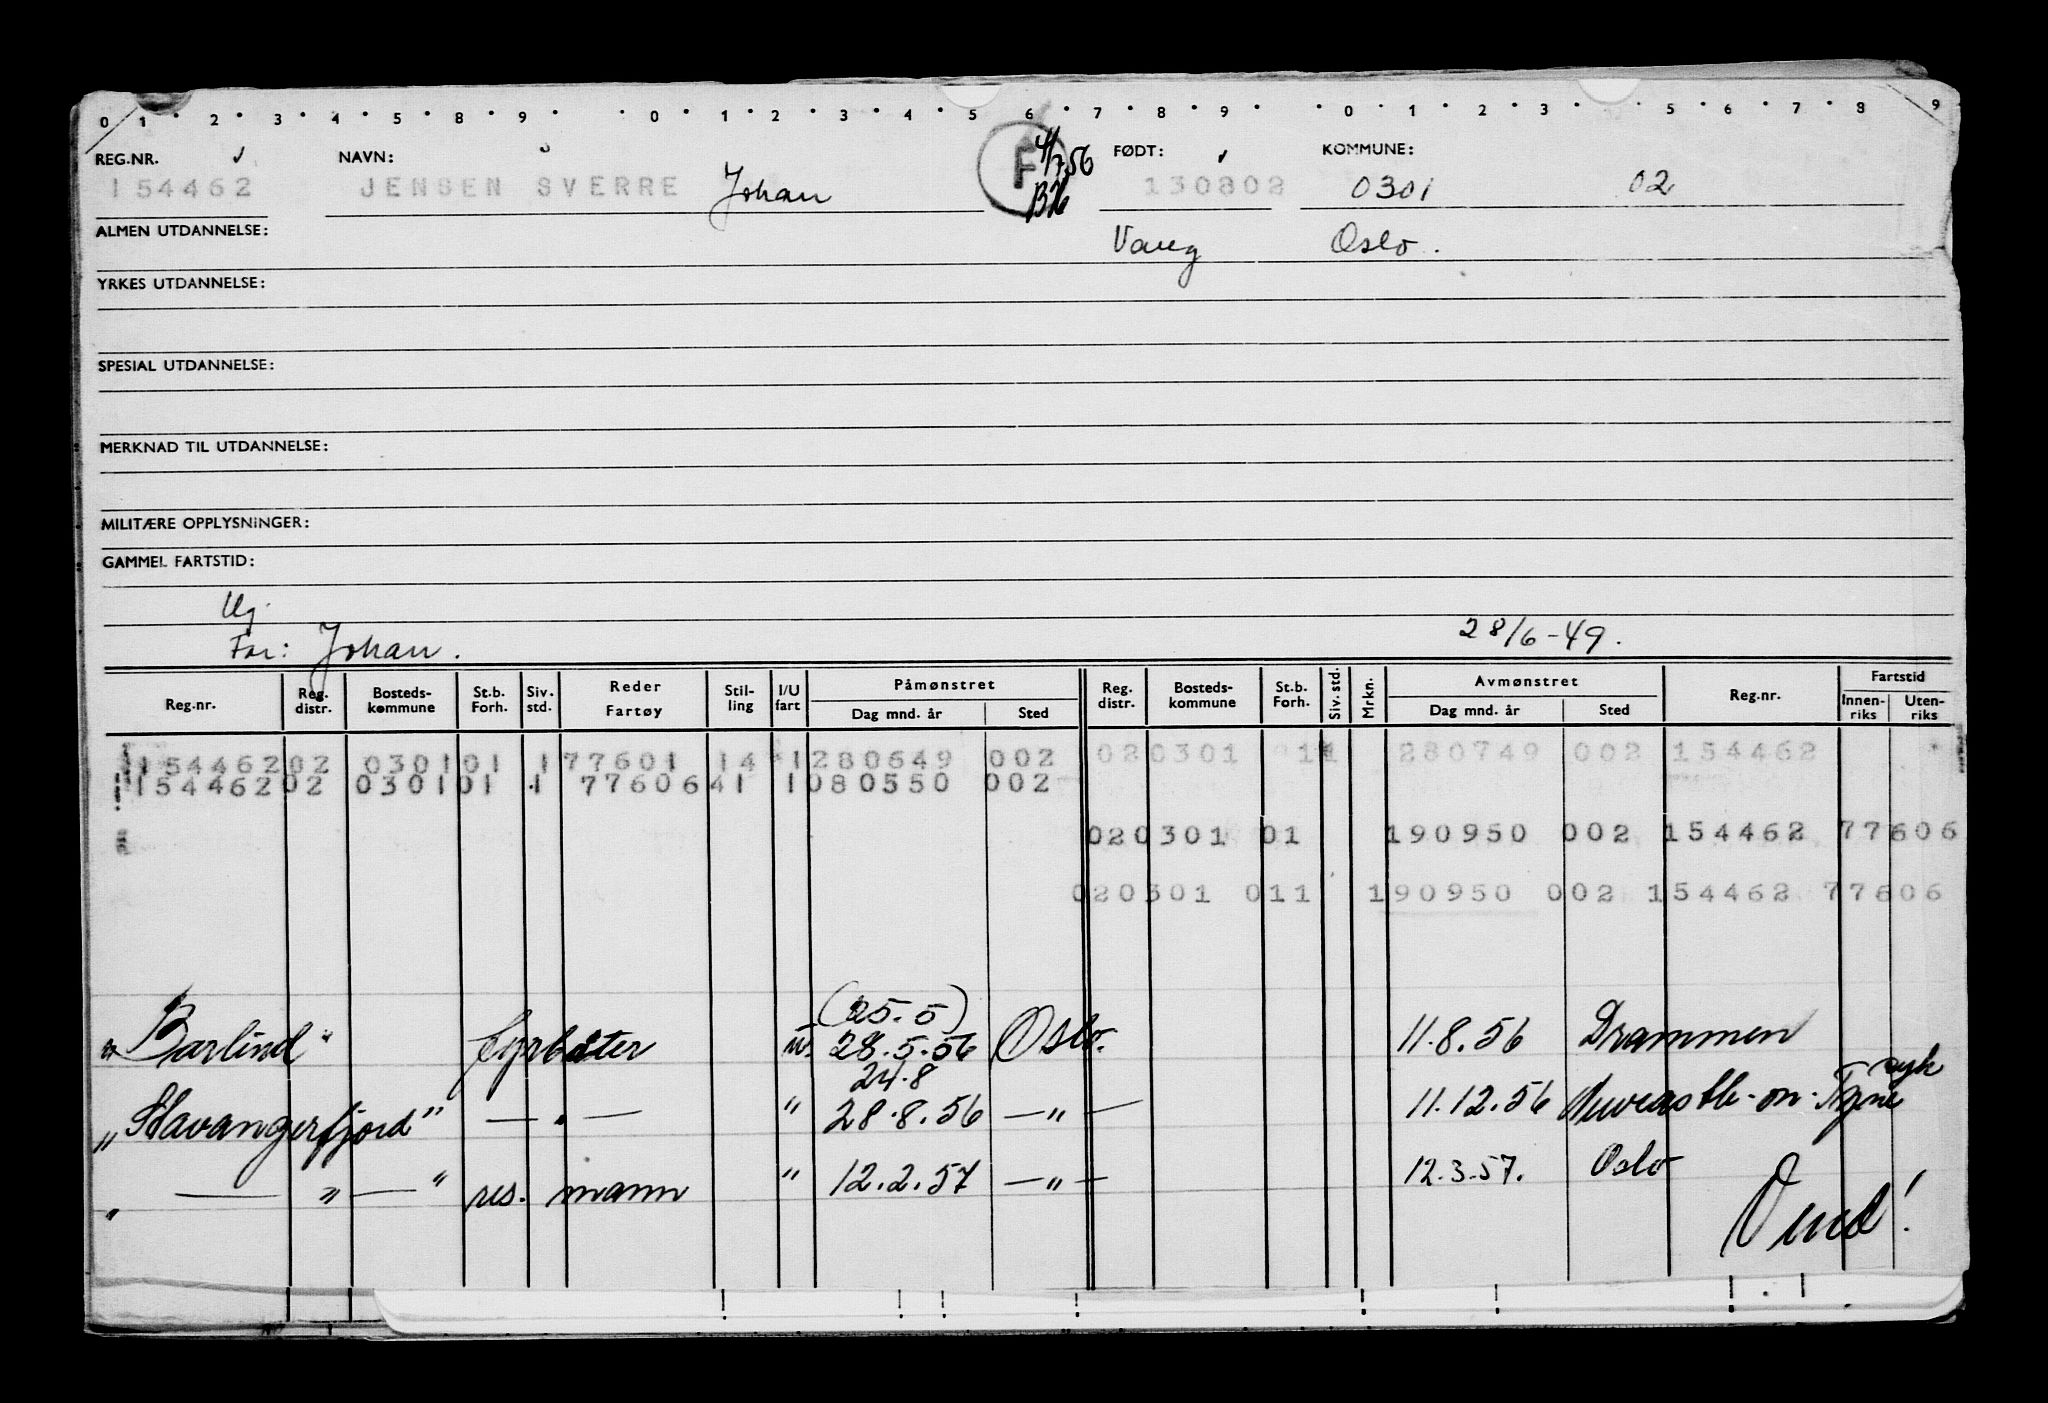 0 1 2 3 4 5 8 9 0 1 2 3 4 5 6 7 8 9 0 1 2 3 5 6 7 8 9
REG.NR. NAVN: F 4/7 56 FØDT: KOMMUNE:
154462 JENSEN SVERRE Johan 130802 0301 02
ALMEN UTDANNELSE: Vang Oslo.
YRKES UTDANNELSE:
SPESIAL UTDANNELSE:
MERKNAD TIL UTDANNELSE:
MILITÆRE OPPLYSNINGER:
GAMMEL FARTSTID:
Ug.
Far: Johan. 28/6-49.
Reg.nr. Reg. distr. Bosteds-kommune St.b. Forh. Siv. std. Reder Fartøy Stil-ling I/U fart Påmønstret Dag mnd. år Sted Reg. distr. Bosteds-kommune St.b. Forh. Siv. std. Mrkn. Avmønstret Dag mnd. år Sted Reg.nr. Fartstid Innen-riks Uten-riks
154462 02 0301 01 1 77601 14 1 280649 002 02 0301 011 280749 002 154462
154462 02 0301 01 1 77606 41 1 080550 002
02 0301 01 190950 002 154462 77606
02 0301 011 190950 002 154462 77606
(25.5)
"Barlind" fyrbøter u. 28.5.56 Oslo. 11.8.56 Drammen
24.8 syk
"Stavangerfjord" — " — " 28.8.56 — " — 11.12.56 Newcastle-on-Tyne
" — " — " res. mann " 12.2.57 — " — 12.3.57. Oslo
Vend!